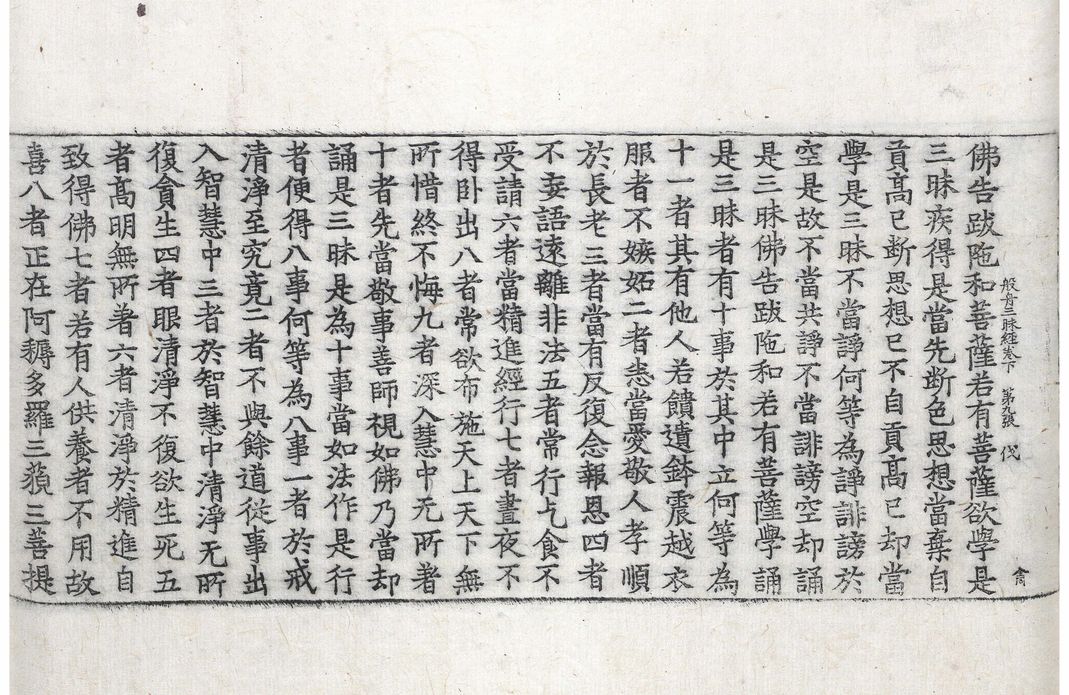 般舟三昧經卷下　第九張　伐
佛告跋陁和菩薩若有菩薩欲學是
三昧疾得是當先断色思想當棄自
貢高已断思想已不自貢高已却當
學是三昧不當諍何等為諍誹謗於
空是故不當共諍不當誹謗空却誦
是三昧佛告跋陁和若有菩薩學誦
是三昧者有十事於其中立何等為
十一者其有他人若饋遺鉢震越衣
服者不嫉妬二者悉當愛敬人孝順
於長老三者當有反復念報恩四者
不妄語遠離非法五者常行乞食不
受請六者當精進經行七者晝夜不
得卧出八者常欲布施天上天下無
所惜終不悔九者深入慧中无所著
十者先當敬事善師視如佛乃當却
誦是三昧是為十事當如法作是行
者便得八事何等為八事一者於戒
清淨至究竟二者不與餘道従事出
入智慧中三者於智慧中清淨无所
復貪生四者眼清淨不復欲生死五
者髙明無所著六者清淨於精進自
致得佛七者若有人供養者不用故
喜八者正在阿耨多羅三藐三菩提